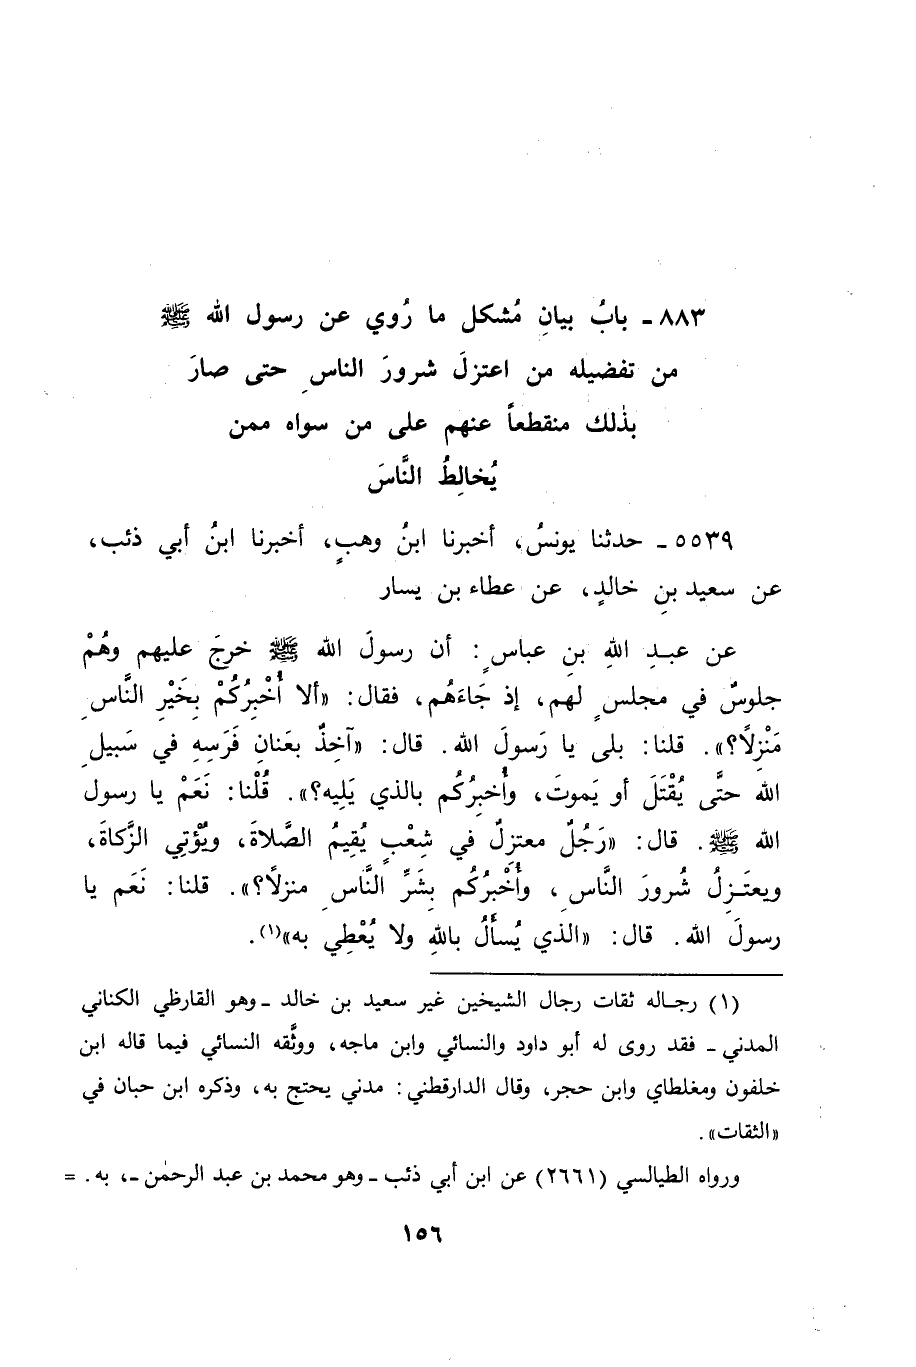 ٨٨٣ - بابُ بيانِ مُشكل ما رُوي عن رسول الله ﷺ
من تفضيله من اعتزلَ شرورَ الناسِ حتى صارَ
بذٰلك منقطعاً عنهم على من سواه ممن
يُخالِطُ النَّاسَ
٥٥٣٩ - حدثنا يونسُ، أخبرنا ابنُ وهبٍ، أخبرنا ابنُ أبي ذئب،
عن سعيد بنِ خالدٍ، عن عطاء بن يسار
عن عبدِ اللهِ بنِ عباسٍ: أن رسولَ الله ﷺ خرجَ عليهم وهُمْ
جلوسٌ في مجلسٍ لهم، إذ جَاءَهُم، فقال: «ألا أُخْبِرُكُمْ بِخَيْرِ النَّاسِ
مَنْزِلًا؟». قلنا: بلى يا رَسولَ الله. قال: «آخِذٌ بعَنانِ فَرَسِهِ في سَبيلِ
الله حتَّى يُقْتَلَ أو يَموتَ، وأُخبِرُكُم بالذي يَلِيه؟». قُلْنا: نَعَمْ يا رسول
الله ﷺ. قال: «رَجُلٌ معتزلٌ في شِعْبٍ يُقِيمُ الصَّلاةَ، ويُؤْتِي الزَّكاةَ،
ويعتَزِلُ شُرورَ النَّاسِ، وأُخْبِرُكُم بِشَرِّ النَّاسِ منزلًا؟». قلنا: نَعَم يا
رسولَ الله. قال: «الذي يُسأَلُ باللهِ ولا يُعْطِي به»(١).
(١) رجاله ثقات رجال الشيخين غير سعيد بن خالد - وهو القارظي الكناني
المدني - فقد روى له أبو داود والنسائي وابن ماجه، ووثَّقه النسائي فيما قاله ابن
خلفون ومغلطاي وابن حجر، وقال الدارقطني: مدني يحتج به، وذكره ابن حبان في
«الثقات».
ورواه الطيالسي (٢٦٦١) عن ابن أبي ذئب - وهو محمد بن عبد الرحمٰن -، به. =
١٥٦